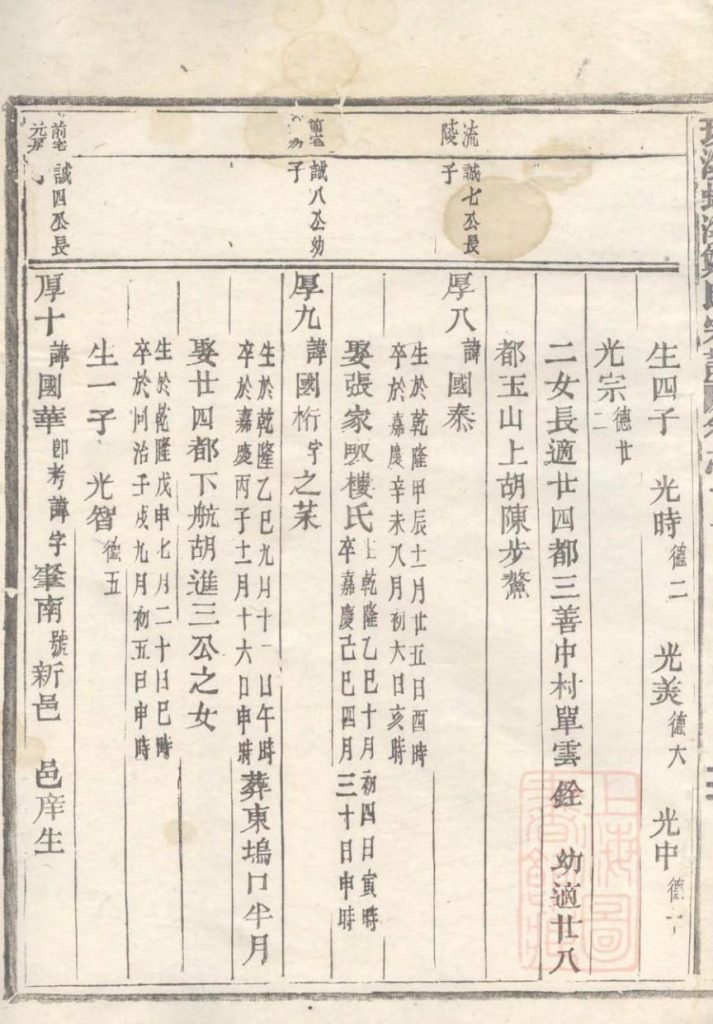 生四子 光時德二 光美德六 光中德
光宗德廿二
二女長適廿四都三善中村單雲銓 幼適廿八
都玉山上胡陳步鰲
流陵
誠七公長子
厚八諱國泰
生於乾隆甲辰十一月廿五日酉時
卒於嘉慶辛未八月初六日亥時
娶張家畈樓氏生乾隆乙巳十月初四日寅時
卒嘉慶己巳四月三十日申時
前宅
誠八公幼子
厚九諱國桁字之茉
生於乾隆乙巳九月十一日午時
卒於嘉慶丙子十二月十六日申時葬東塢口半月
娶廿四都下航胡進三公之女
生於乾隆戊申七月二十日巳時
卒於同治子戌九月初五日申時
生一子 光智德五
前宅
誠四公長
厚十諱國華即考諱字肇南號新邑 邑庠生